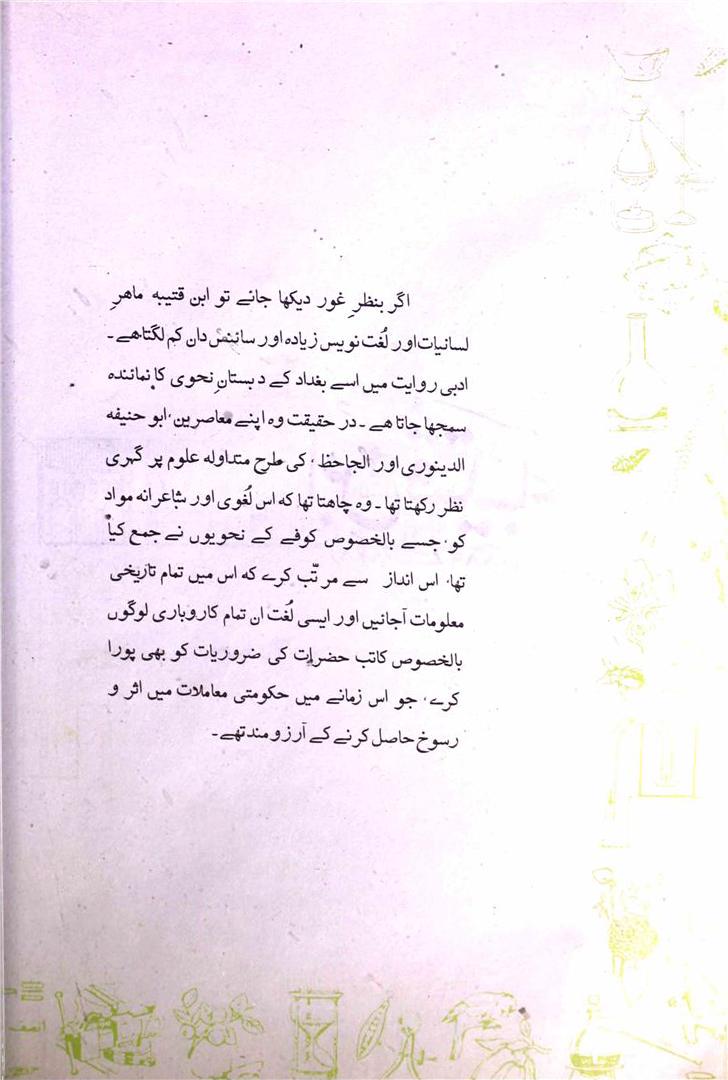 اگر بنظرِ غور دیکھا جائے تو ابن قتیبہ ماھرِ
لسانیات اور لُغت نویس زیادہ اور سائنس دان کم لگتا ھے ۔
ادبی روایت میں اسے بغداد کے دبستانِ نحوی کا نمائندہ
سمجھا جاتا ھے ۔ در حقیقت وہ اپنے معاصرین، ابو حنیفہ
الدینوری اور الجاحظ، کی طرح متداولہ علوم پر گہری
نظر رکھتا تھا ۔ وہ چاھتا تھا کہ اس لُغوی اور شاعرانہ مواد
کو، جسے بالخصوص کوفے کے نحویوں نے جمع کیا
تھا، اس انداز سے مرتّب کرے کہ اس میں تمام تاریخی
معلومات آجائیں اور ایسی لُغت ان تمام کاروباری لوگوں
بالخصوص کاتب حضرات کی ضروریات کو بھی پورا
کرے، جو اس زمانے میں حکومتی معاملات میں اثر و
رسوخ حاصل کرنے کے آرزومند تھے ۔